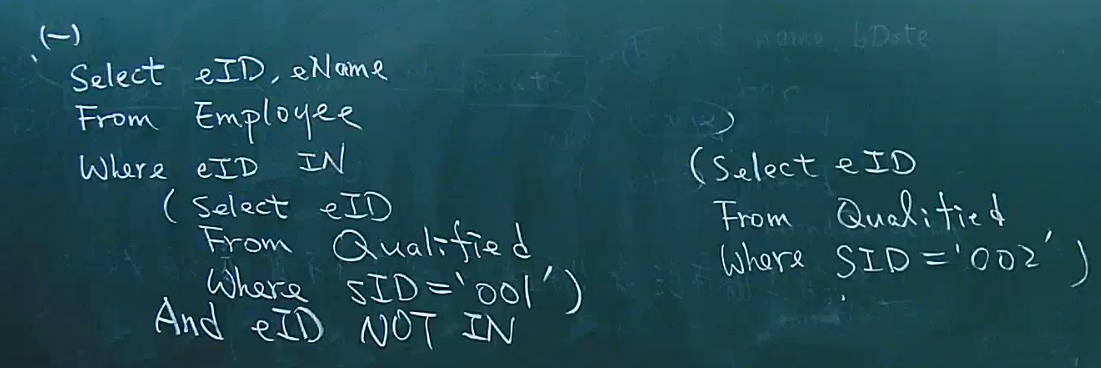 (一)
Select eID, eName
From Employee
Where eID IN
(Select eID
From Qualified
Where sID='001')
And eID NOT IN
(Select eID
From Qualified
Where SID='002')
name bDate